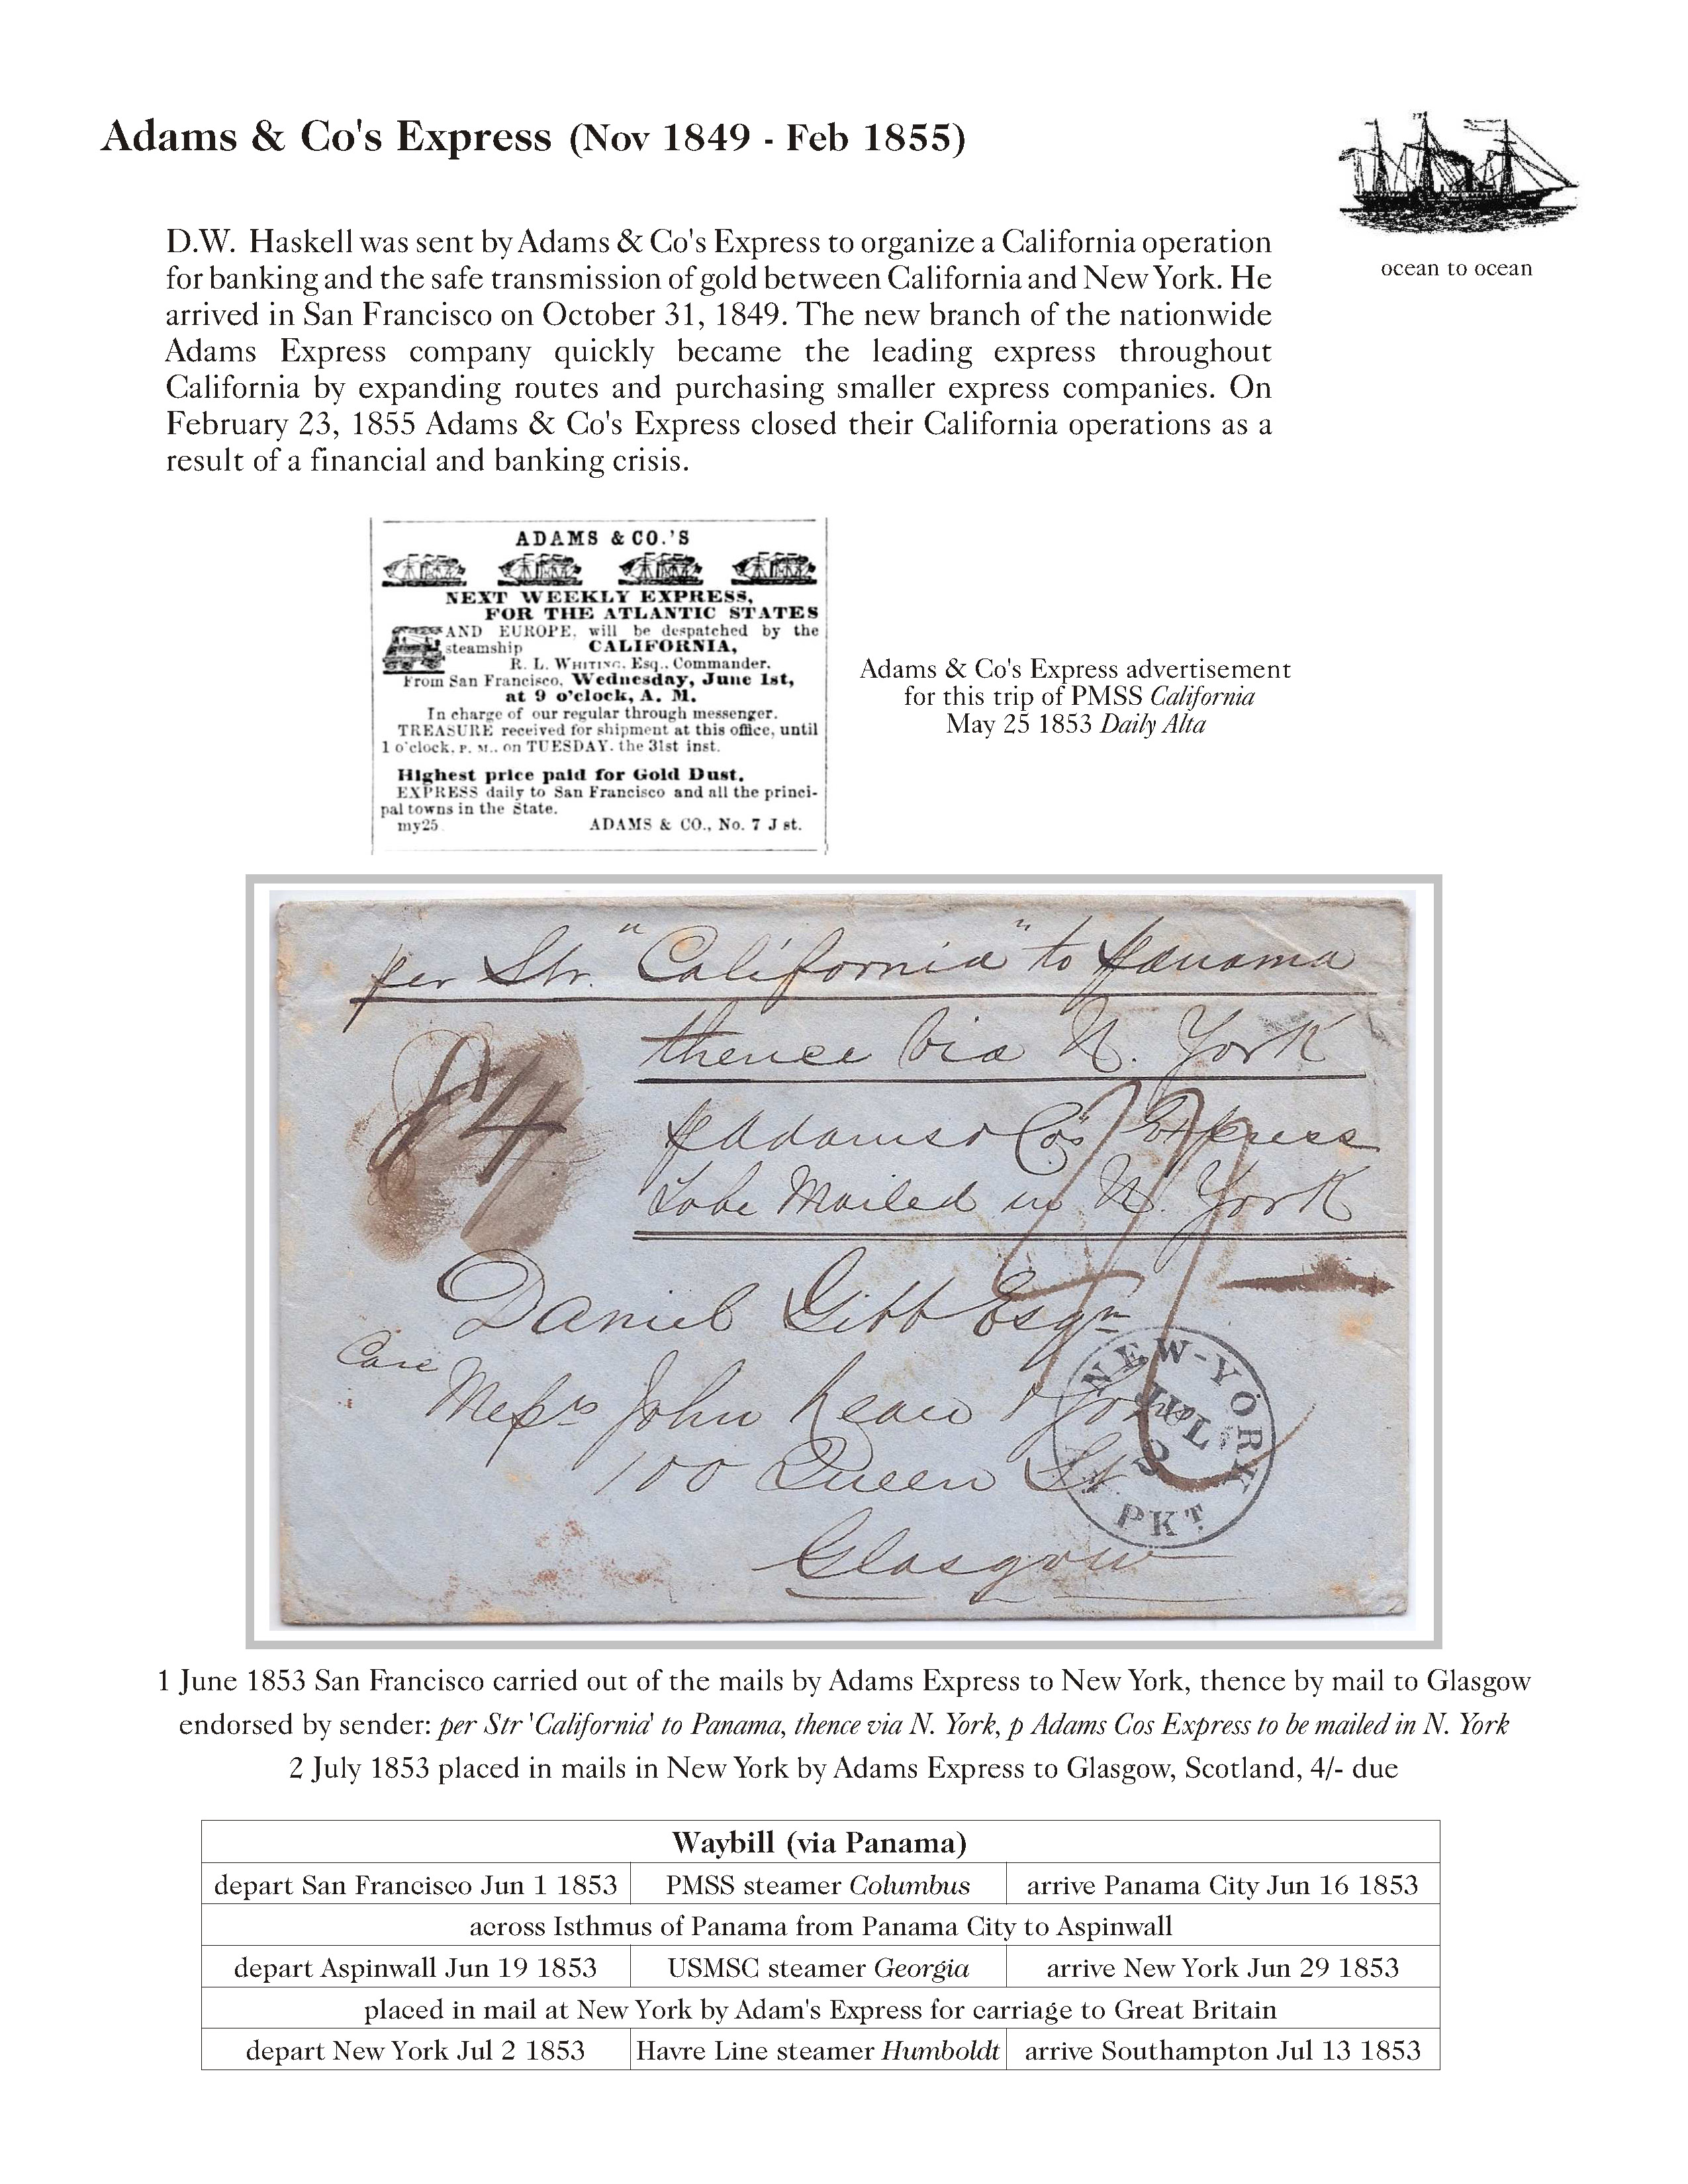 Adams & Co's Express (Nov 1849 - Feb 1855)
ocean to ocean
D.W. Haskell was sent by Adams & Co's Express to organize a California operation
for banking and the safe transmission of gold between California and New York. He
arrived in San Francisco on October 31, 1849. The new branch of the nationwide
Adams Express company quickly became the leading express throughout
California by expanding routes and purchasing smaller express companies. On
February 23, 1855 Adams & Co's Express closed their California operations as a
result of a financial and banking crisis.
ADAMS & CO.'S
NEXT WEEKLY EXPRESS,
FOR THE ATLANTIC STATES
AND EUROPE, will be despatched by the
steamship CALIFORNIA,
R. L. WHITING, Esq., Commander.
From San Francisco, Wednesday, June 1st,
at 9 o'clock, A. M.
In charge of our regular through messenger.
TREASURE received for shipment at this office, until
1 o'clock, P. M., on TUESDAY, the 31st inst.
Highest price paid for Gold Dust.
EXPRESS daily to San Francisco and all the princi-
pal towns in the State.
my25 ADAMS & CO., No. 7 J st.
Adams & Co's Express advertisement
for this trip of PMSS California
May 25 1853 Daily Alta
per Str. "California" to Panama
thence via N. York
p Adams & Co's Express
To be Mailed in N. York
84
Daniel Gibb Esqr
Care
Messrs John
100 Queen St.
Glasgow
NEW-YORK
JUL
2
PKT.
1 June 1853 San Francisco carried out of the mails by Adams Express to New York, thence by mail to Glasgow
endorsed by sender: per Str 'California' to Panama, thence via N. York, p Adams Cos Express to be mailed in N. York
2 July 1853 placed in mails in New York by Adams Express to Glasgow, Scotland, 4/- due
Waybill (via Panama)
depart San Francisco Jun 1 1853 PMSS steamer Columbus arrive Panama City Jun 16 1853
across Isthmus of Panama from Panama City to Aspinwall
depart Aspinwall Jun 19 1853 USMSC steamer Georgia arrive New York Jun 29 1853
placed in mail at New York by Adam's Express for carriage to Great Britain
depart New York Jul 2 1853 Havre Line steamer Humboldt arrive Southampton Jul 13 1853